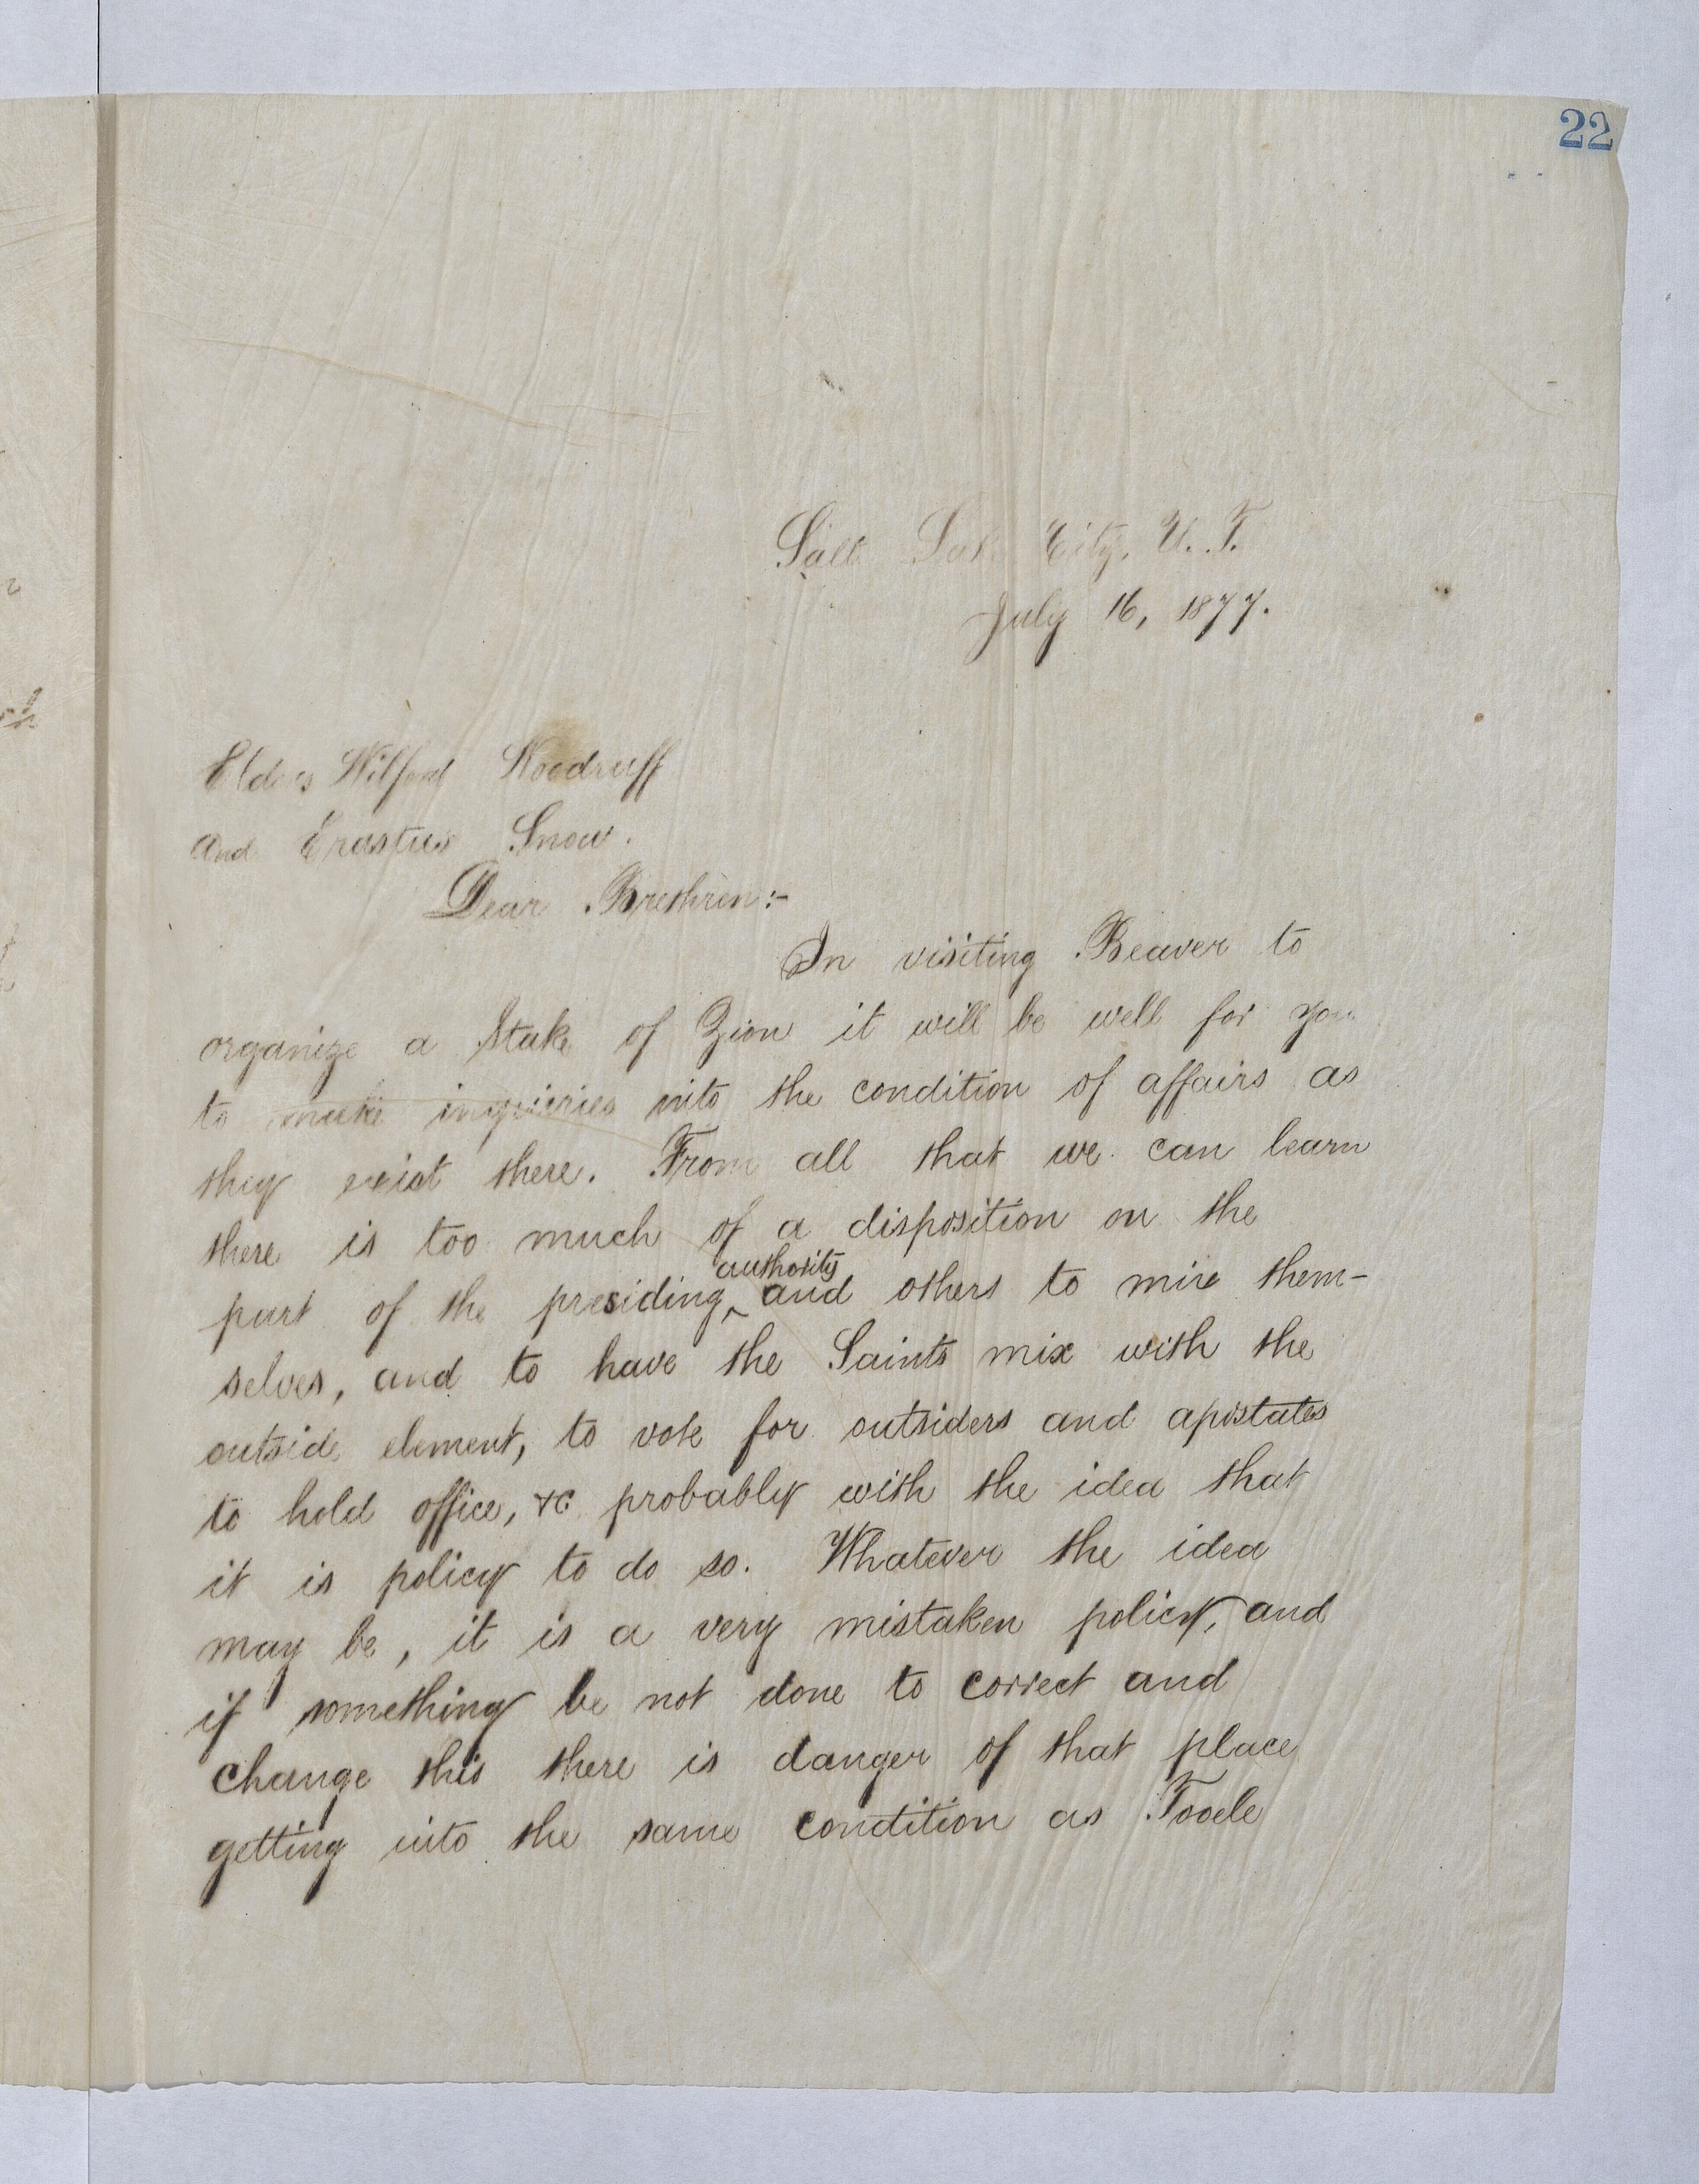 22
Salt Lake City, U. T.
July 16, 1877.
Elders Wilford Woodruff
and Erastus Snow.
Dear Brethren:-
In visiting Beaver to
organize a Stake of Zion it will be well for you
to make inquiries into the condition of affairs as
they exist there. From all that we can learn
there is too much of a disposition on the
part of the presiding ^authority and others to mix them-
selves, and to have the Saints mix with the
outside element, to vote for outsiders and apostates
to hold office, &c probably with the idea that
it is policy to do so. Whatever the idea
may be, it is a very mistaken policy, and
if something be not done to correct and
change this there is danger of that place
getting into the same condition as Tooele